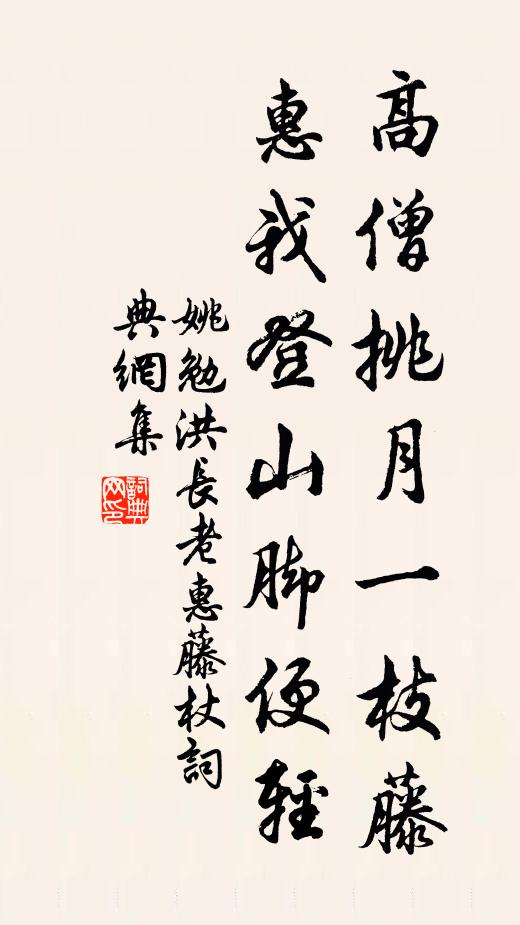 高僧挑月一枝藤
惠我登山脚便輕
姚勉洪長老惠藤杖詞
典網集
詞典网印